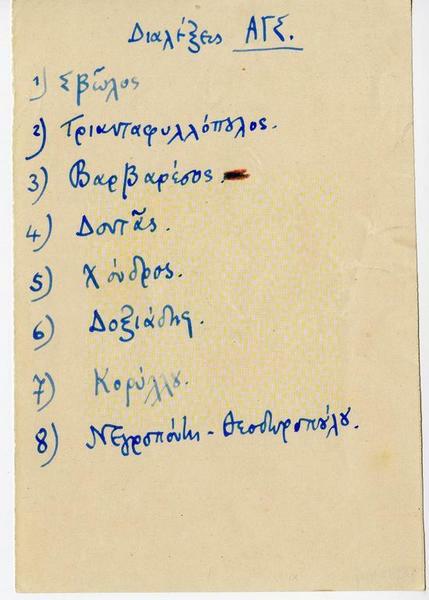 Διαλέξεις ΑΓΣ.
1) Σβῶλος
2) Τριανταφυλλόπουλος.
3) Βαρβαρέσος.
4) Δοντᾶς.
5) Χόνδρος.
6) Δοξιάδης.
7) Κορύλλου.
8) Νεγρεπόντη - Θεοδωροπούλου.